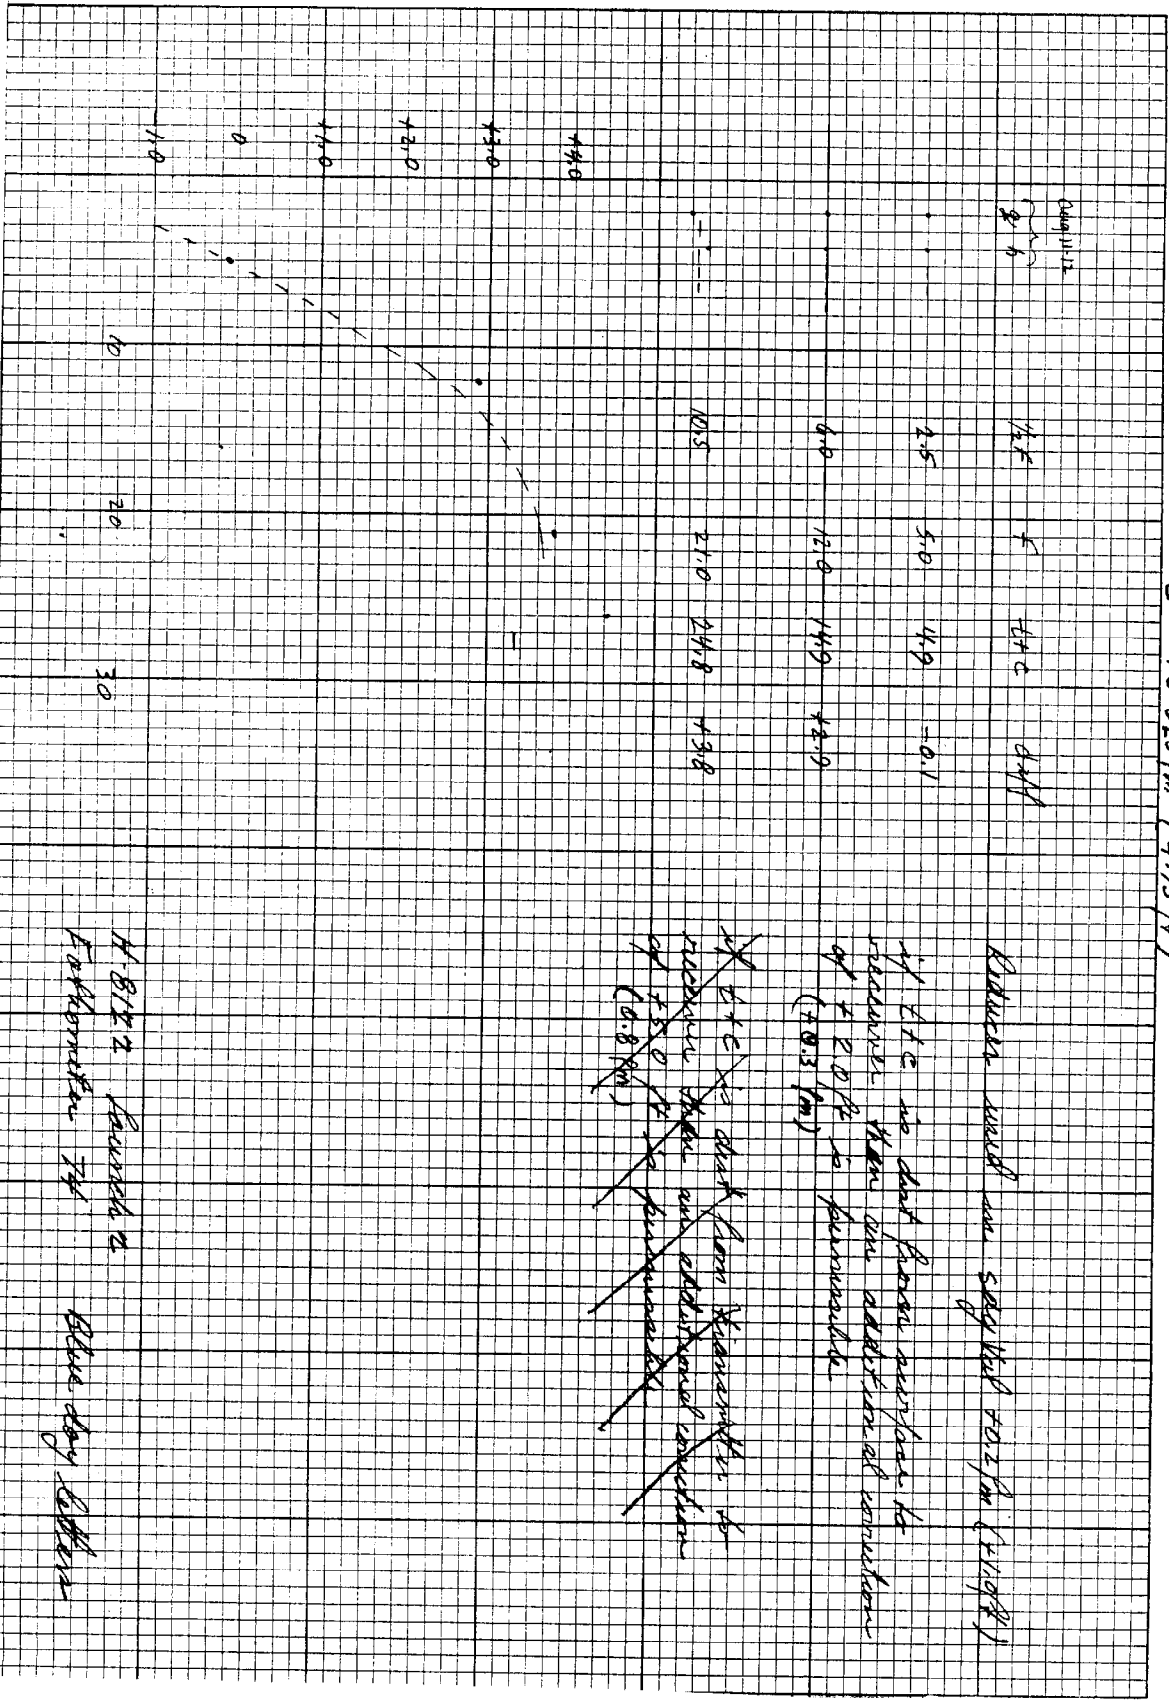 Aug 11-12
g h ½F F t+c diff
2.5 5.0 4.9 -0.1
6.0 12.0 14.9 +2.9
10.5 21.0 24.8 +3.8
+4.0
+3.0
+2.0
+1.0
0
-1.0
10 20 30
Reducer used in sdg Vol +0.2 fm (+1.0 ft)
if t+c is dist from surface to
receiver then an additional correction
of + 2.0 ft is permissible
(+0.3 fm)
if t+c is dist from transmitter to
receiver then an additional correction
of +5.0 ft is permissible
(0.8 fm)
H-8122 Launch 2
Fathometer 74 Blue day letters